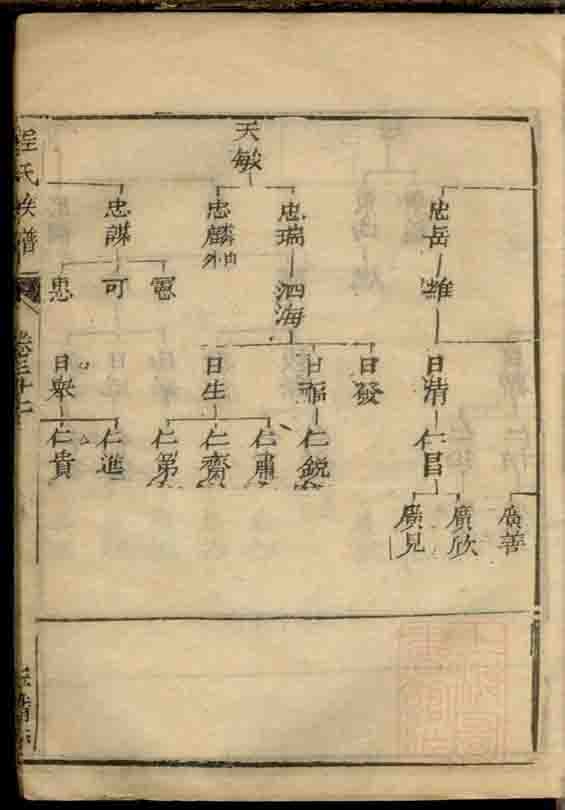 天敏
忠岳
忠瑞
忠麟
外出
忠謀
雄
泗海
電
可
惠
日清
日發
日福
日生
日衆
仁昌
仁銳
仁肅
仁齋
仁第
仁進
仁貴
廣善
廣欣
廣見
程氏族譜
卷三十七